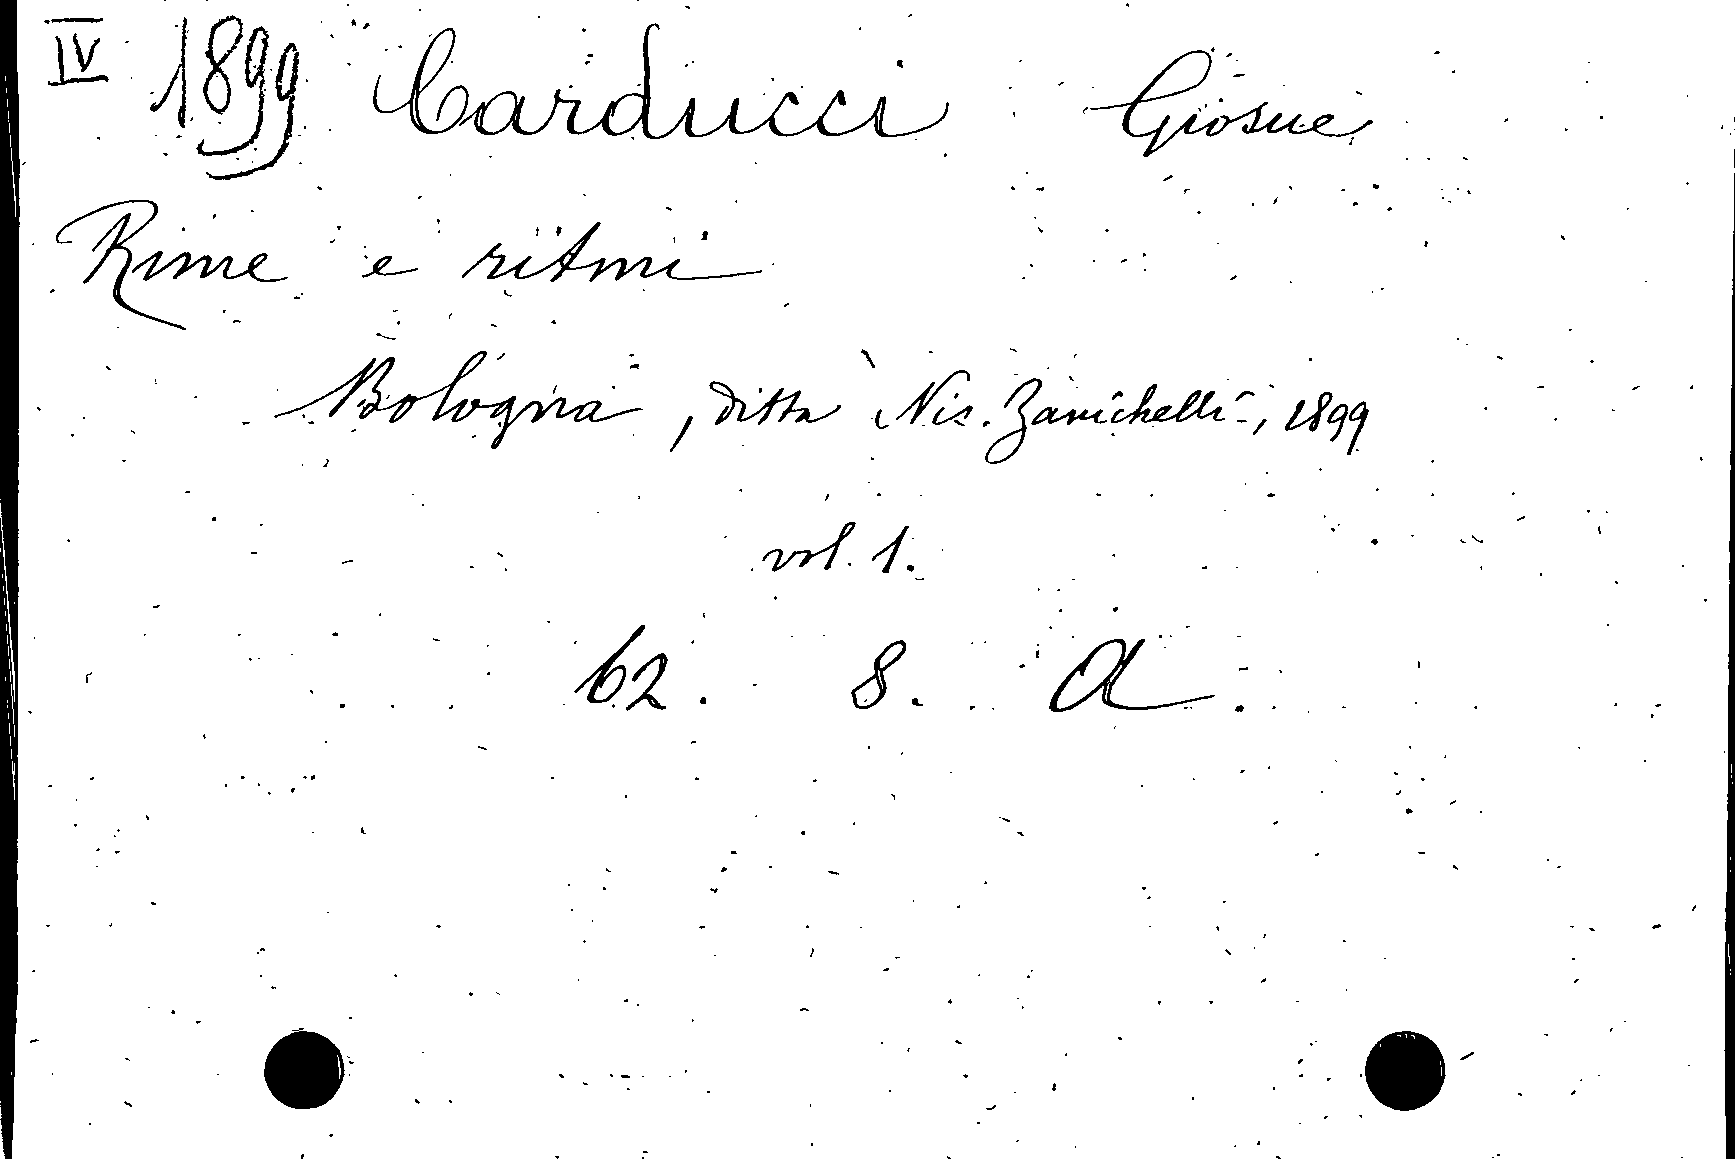 IV 1899 Carducci Giosue
Rime e ritmi
Bologna, ditta Nic. Zanichelli, 1899
vol. 1.
62. 8. A.